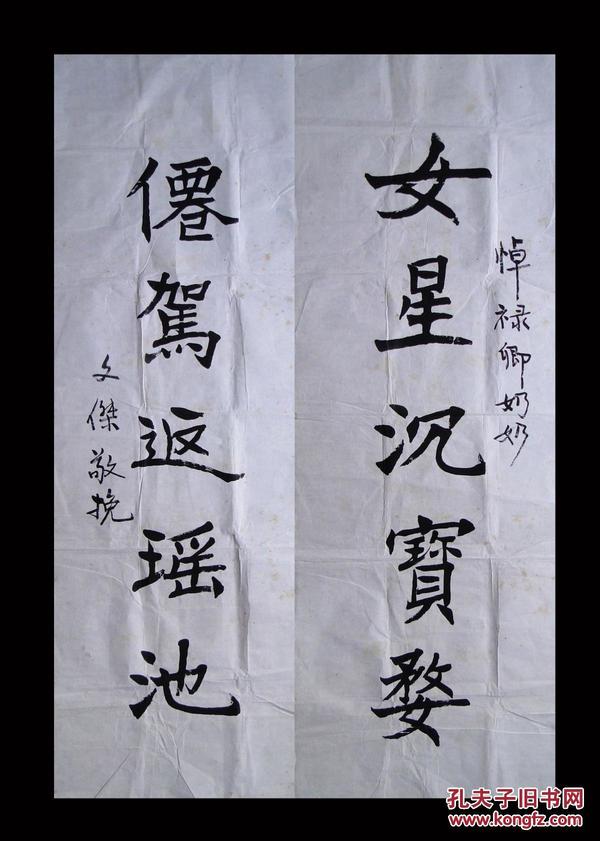 悼禄卿奶奶
女星沉寶婺
僊駕返瑶池
文傑敬挽
孔夫子旧书网
www.kongfz.com